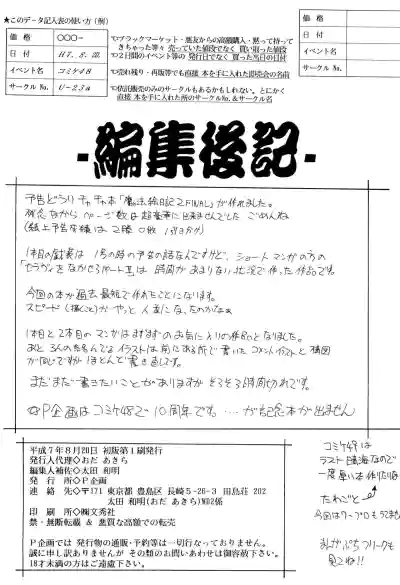 ★このデータ記入表の使い方（例）
価格 ○○○-
日付 H7.8.20
イベント名 コミケ48
サークルNo. U-23a
☜ブラックマーケット・朋友からの高額購入・黙って持って
きちゃった等々 売っていた値段でなく 買い取った値段
☜2日間のイベント等の 発行日でなく 買った当日の日付
☜売れ残り・再版等でも 直接 本を手に入れた即売会の名前
☜依託販売のみのサークルもあるかもしれない。とにかく
直接 本を手に入れた所のサークルNo.&サークル名
価格
日付
イベント名
サークルNo.
-編集後記-
予告どうり チャチャ本「魔法絵日記2 FINAL」が作れました。
残念ながら ページ数は超豪華に出来ませんでした ごめんね
1本目の戯実は 1号の時の予告の話なんですけど、ショートマンガの方の
は 時間があまりない状況で作った作品です。
今回の本が過去最短で作れたことになります。
スピード(描くこと)が やっと 人並になったのかなぁ
1本目と2本目のマンガはまずまずのお気に入りの作品となりました。
あと 3人の
イラストは前にある所で書いた
イラストと構図
が同じですが ほとんど書き直しです。
まだまだ書きたいことがありますが そろそろ時間切れです。
P企画はコミケ48で10周年です・・・が記念本が出ません
平成7年8月20日 初版第1刷発行
発行人代理◇おだ あきら
編集人補佐◇太田 和明
発行所◇P企画
連絡先◇〒171 東京都 豊島区 長崎5-26-3 田島荘 202
太田 和明(おだ あきら)WD2係
印刷所◇㈲文秀社
禁・無断転載 & 悪質な高額での転売
P企画では 発行物の通販・予約等は一切行なっておりません。
誠に申し訳ありませんが その類のお問いあわせは御容赦下さい。
18才未満の方はご遠慮下さい。
コミケ49は
ラスト晴海なので
一度 厚い本 作りたいな
たわごと
今回はワープロも
まんがぶちフリークも
見てね!!